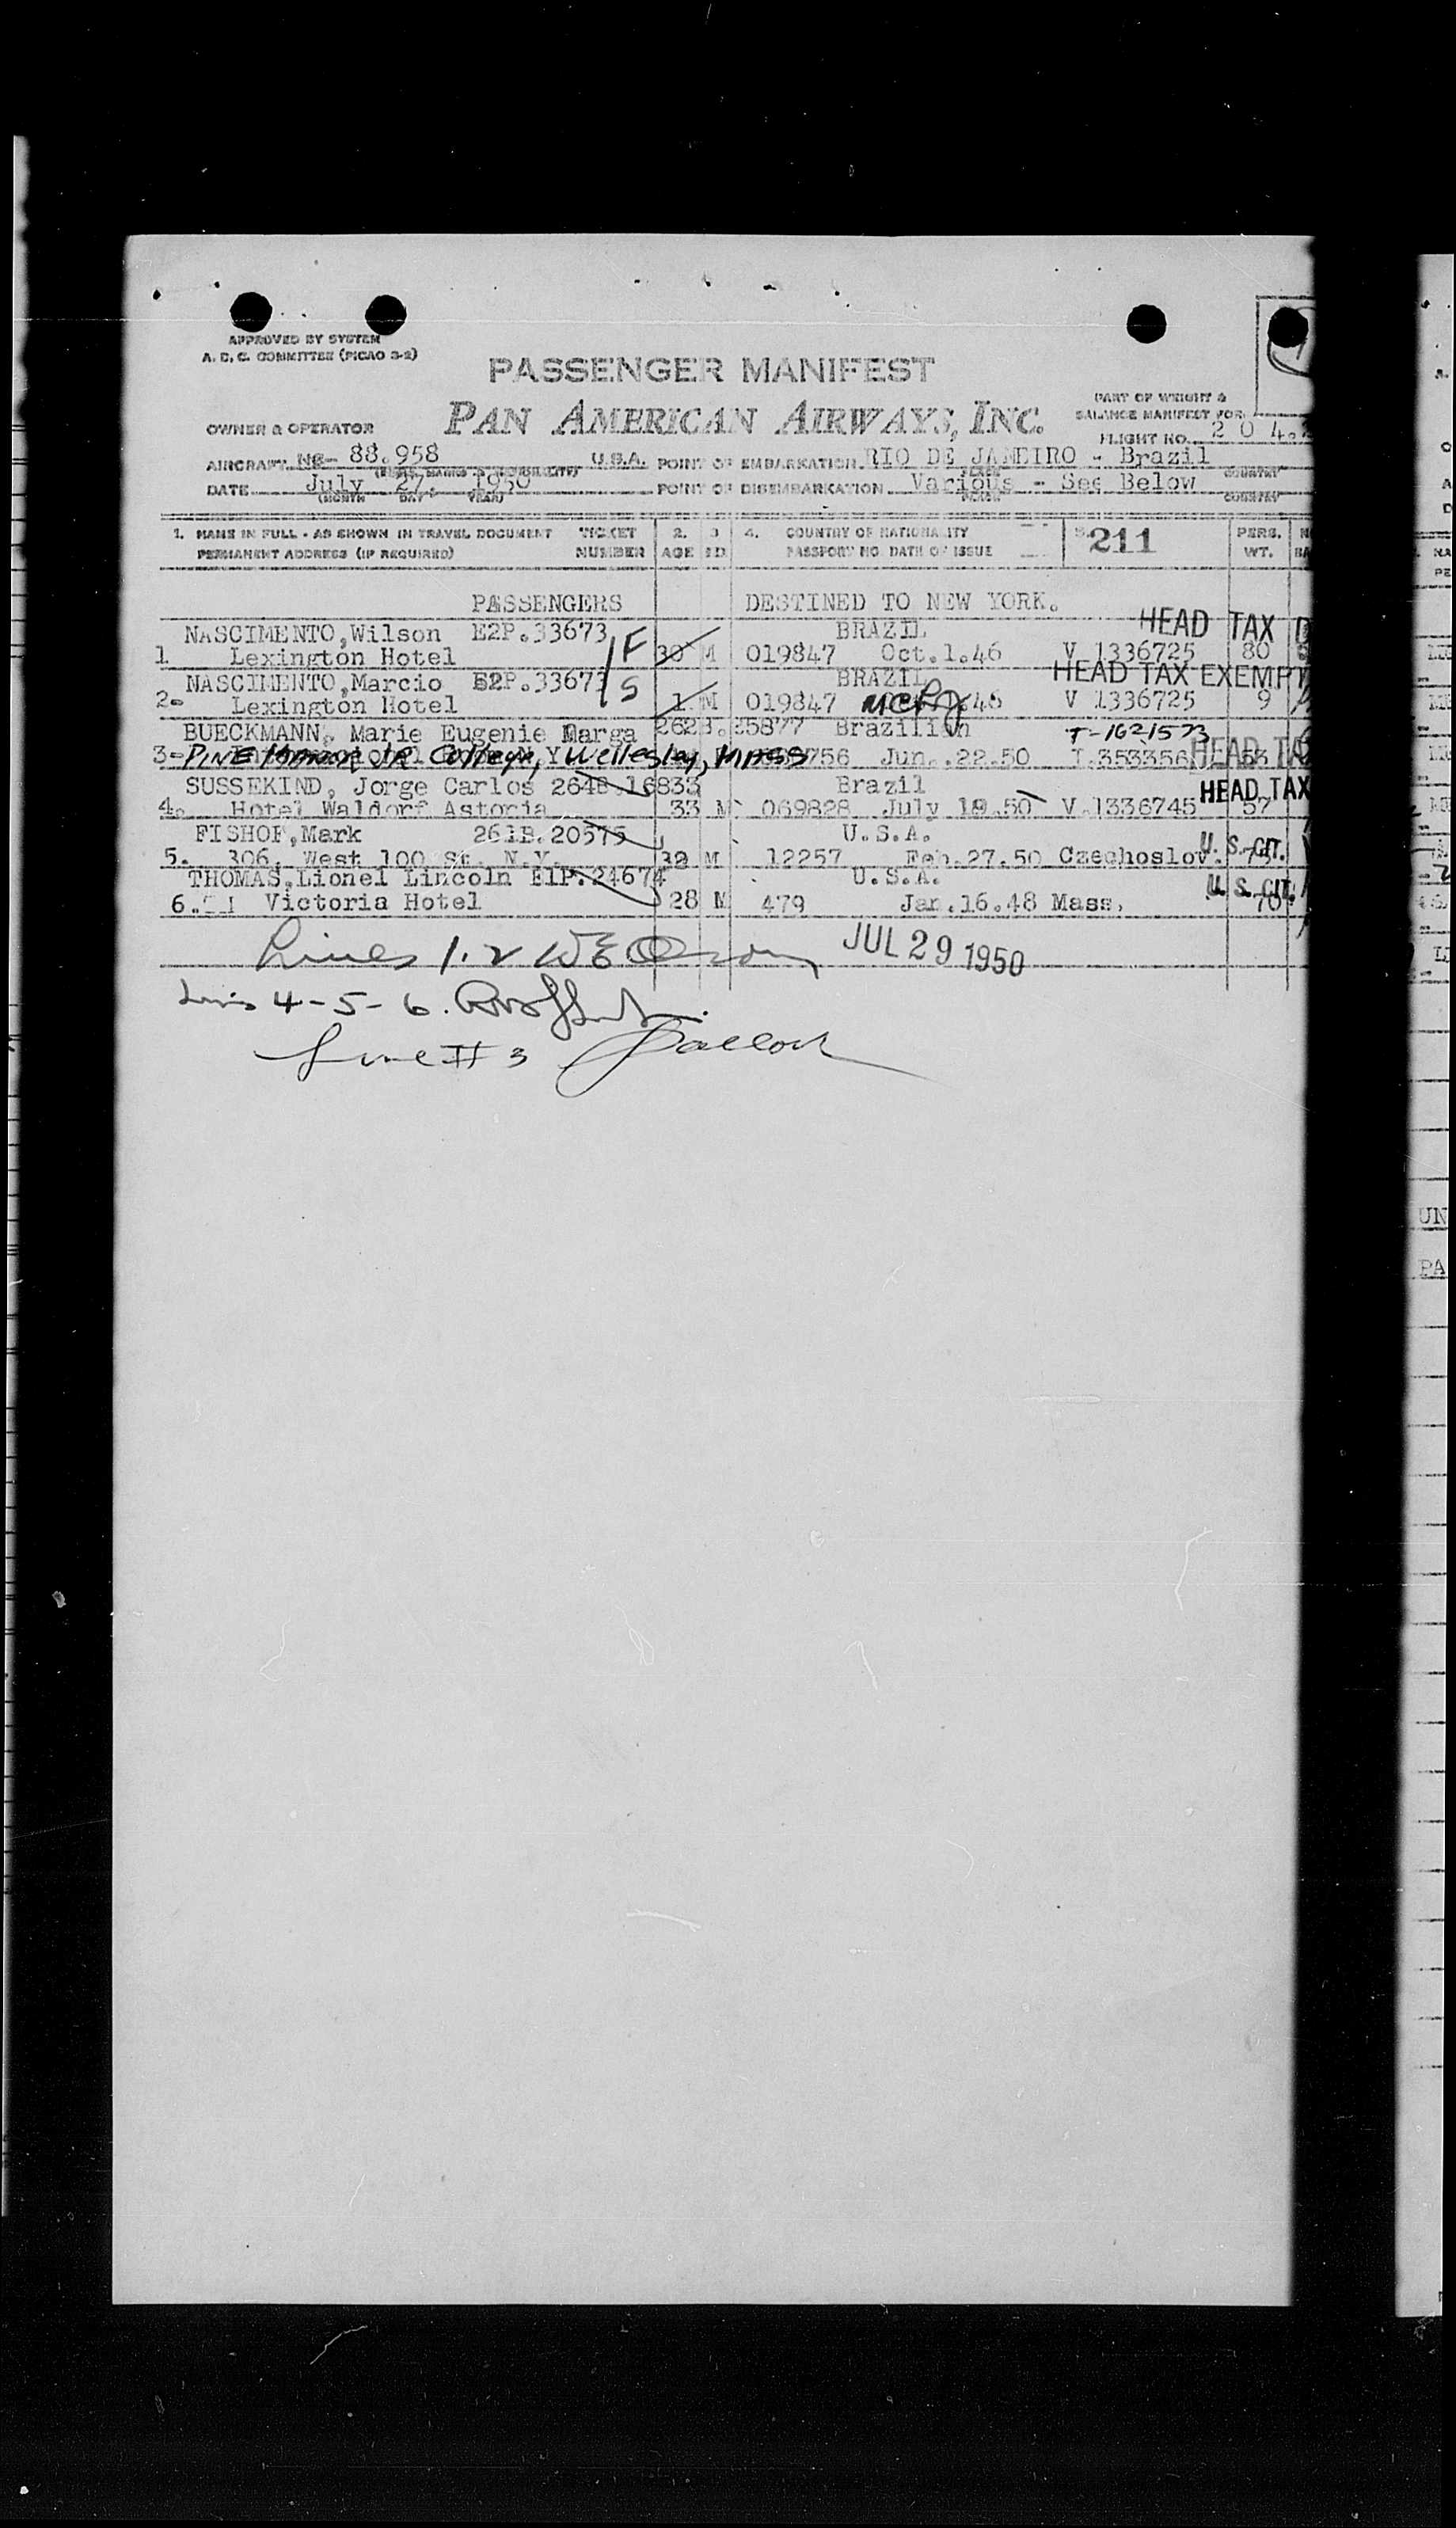 APPROVED BY SYSTEM
A. D. C. COMMITTEE (PICAO 3-2)
PASSENGER MANIFEST
PAN AMERICAN AIRWAYS, INC.
PART OF WEIGHT &
BALANCE MANIFEST FOR
OWNER & OPERATOR
FLIGHT NO. 204
AIRCRAFT 88.958 U.S.A. POINT OF EMBARKATION RIO DE JANEIRO - Brazil
DATE July 27, 1950 POINT OF DISEMBARKATION Various - See Below
(MONTH DAY YEAR) PLACE COUNTRY
1. NAME IN FULL - AS SHOWN IN TRAVEL DOCUMENT TICKET 2. 3 4. COUNTRY OF NATIONALITY 211 PERS.
PERMANENT ADDRESS (IF REQUIRED) NUMBER AGE PASSPORT NO. DATE OF ISSUE WT.
PASSENGERS DESTINED TO NEW YORK.
NASCIMENTO,Wilson E2P.33673 BRAZIL HEAD TAX
1 Lexington Hotel 30 M 019847 Oct.1.46 V 1336725 80
NASCIMENTO,Marcio E2P.33673 BRAZIL HEAD TAX EXEMPT
2- Lexington Hotel 1 M 019847 46 V 1336725 9
BUECKMANN, Marie Eugenie Marga 262B.25877 Brazilian T-1621573
3- PINE MANOR JR College, Wellesley, MASS 756 Jun.22.50 I.353356 53 HEAD TA
SUSSEKIND, Jorge Carlos 264B.16833 Brazil HEAD TAX
4. Hotel Waldorf Astoria 33 M 069828 July 19.50 V.1336745 57
FISHOF,Mark 261B.20575 U.S.A.
5. 306. West 100 St. N.Y. 39 M 12257 Feb.27.50 Czechoslov. U. S. CIT.
THOMAS,Lionel Lincoln E1P.24674 U.S.A.
6. Victoria Hotel 28 M 479 Jan.16.48 Mass. U. S. CIT.
Lines 1.2 JUL 29 1950
Lines 4-5-6.
Line # 3